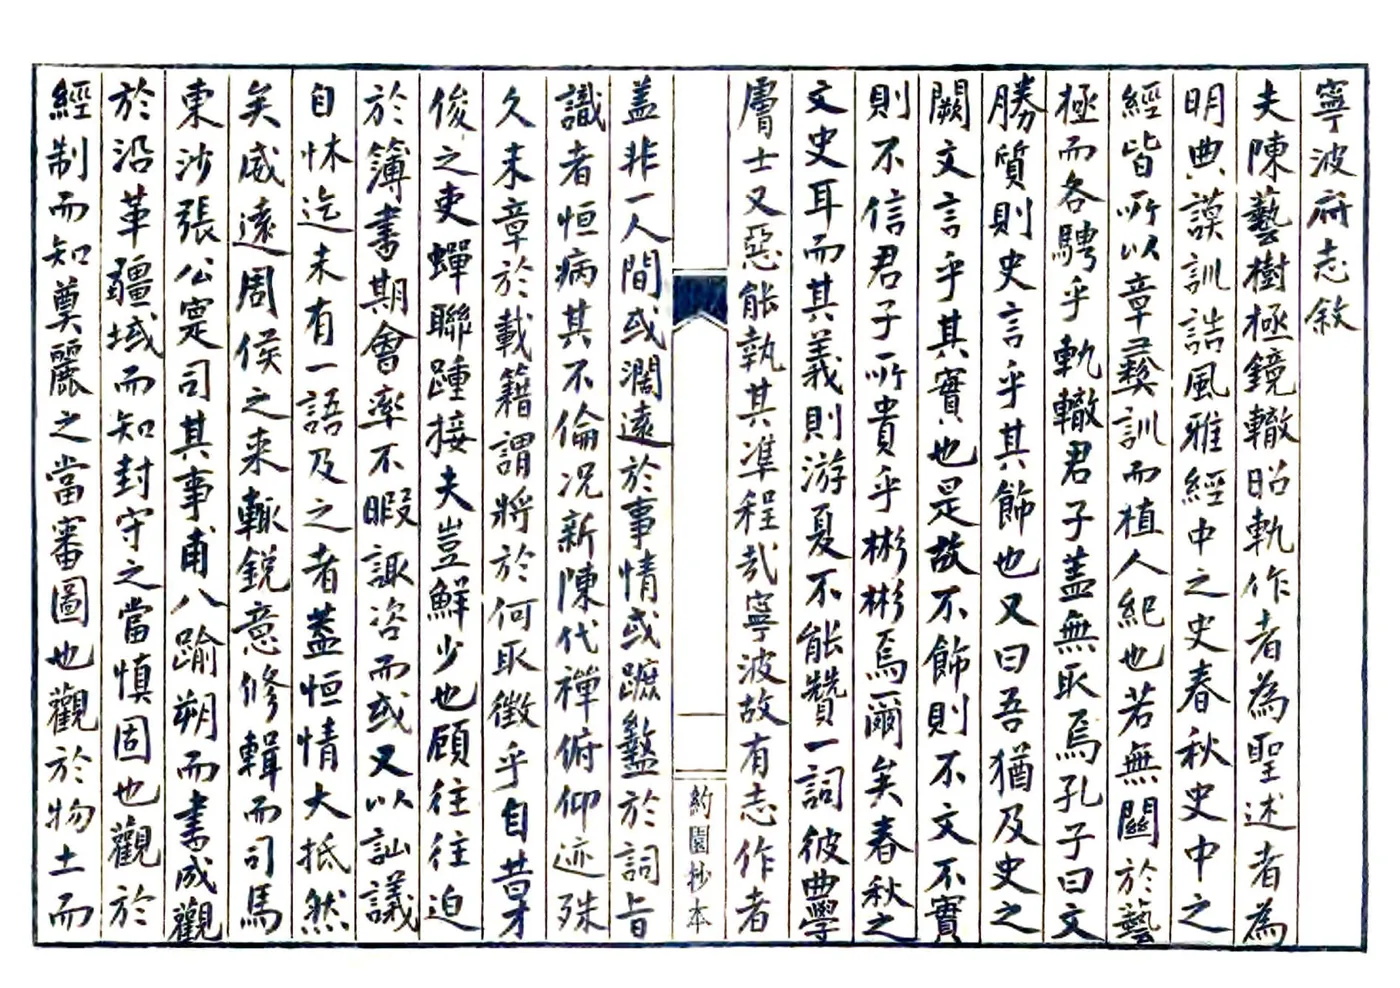 寧波府志敘
夫陳藝樹極鏡轍昭軌作者為聖述者為
明典謨訓誥風雅經中之史春秋史中之
經皆所以章彞訓而植人紀也若無關於藝
極而各騁乎軌轍君子蓋無取焉孔子曰文
勝質則史言乎其飾也又曰吾猶及史之
闕文言乎其實也是故不飾則不文不實
則不信君子所貴乎彬彬焉爾矣春秋之
文史耳而其義則游夏不能贊一詞彼典學
膚士又惡能執其準程哉寧波故有志作者
約園抄本
蓋非一人間或濶遠於事情或蹠盭於詞旨
識者恒病其不倫况新陳代禪俯仰迹殊
久未章於載籍謂將於何取徵乎自昔才
俊之吏蟬聯踵接夫豈鮮少也顧往往迫
於簿書期會率不暇諏咨而或又以訕議
自怵迄未有一語及之者蓋恒情大抵然
矣威遠周侯之来輙鋭意修輯而司馬
東沙張公寔司其事甫八踰朔而書成觀
於沿革疆域而知封守之當慎固也觀於
經制而知奠麗之當審圖也觀於物土而